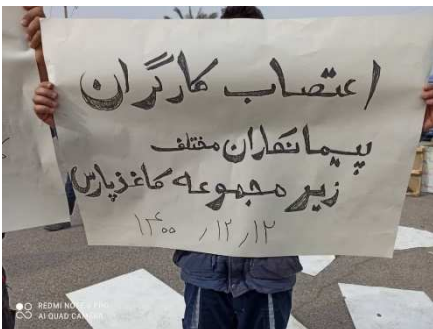 اعتصاب کارگران
پیمانکاران مختلف
زیر مجموعه کاغذ پارس
۱۴۰۰ /۱۲ /۱۲
REDMI NOTE
AI QUAD CAMERA